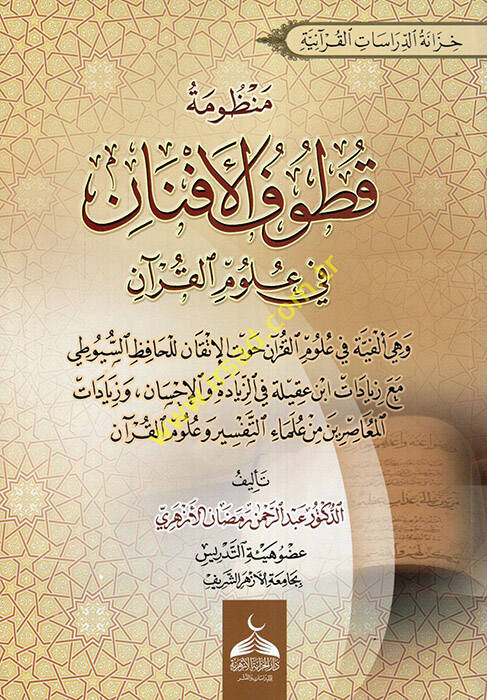 خزانة الدراسات القرآنية
منظومة
قطوف الأفنان
في علوم القرآن
وهي ألفية في علوم القرآن حوت الإتقان للحافظ السيوطي
مع زيادات ابن عقيلة في الزيادة والإحسان، وزيادات
المعاصرين من علماء التفسير وعلوم القرآن
تأليف
الدكتور عبد الرحمن رمضان الأزهري
عضو هيئة التدريس
بجامعة الأزهر الشريف
دار الخزانة الأزهرية
للدراسات والنشر